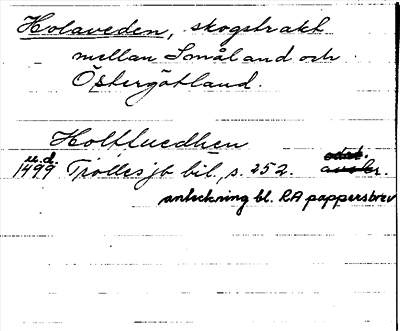 Holaveden, skogstrakt
mellan Småland och
Östergötland.
Holffuedhen
u.d.
1499 Trollesjb bil., s. 252. odat. avskr.
anteckning bl. RA pappersbrev